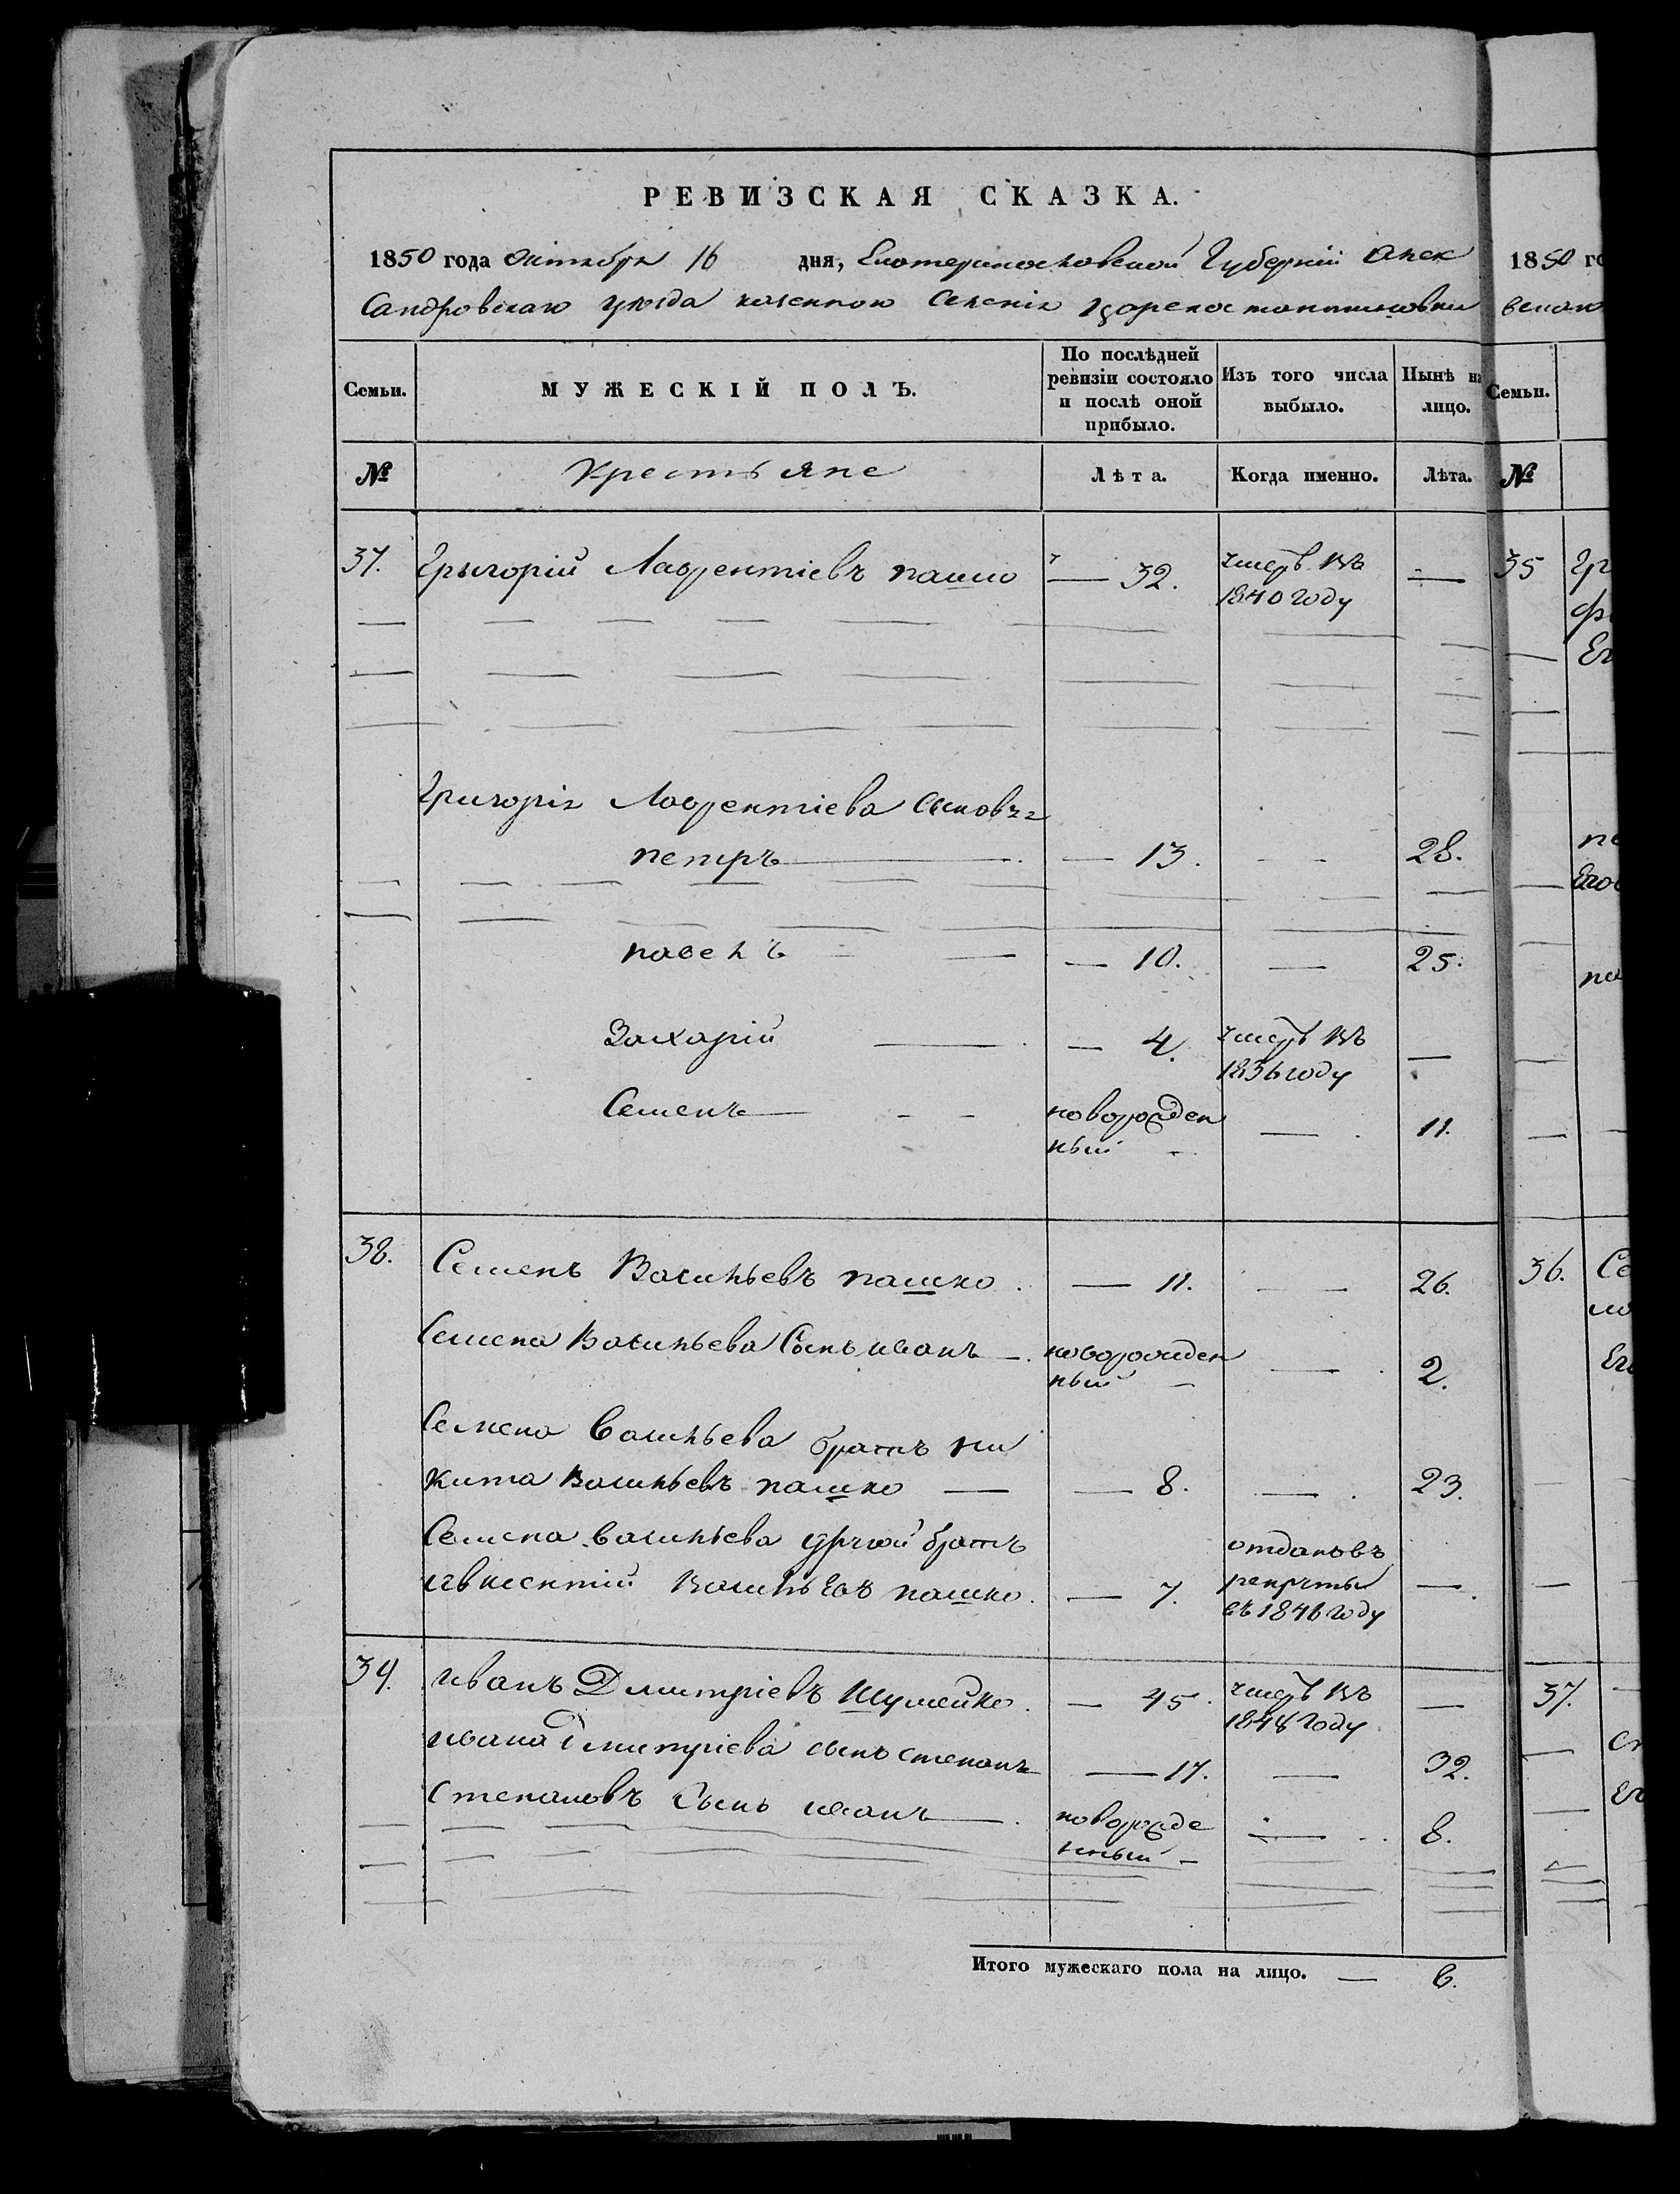 РЕВИЗСКАЯ СКАЗКА.
1850 года октября 16 дня, Екатеринославской Губернии Алек
сандровскаго уезда казенного селения Цареконстантиновки
Семьи. МУЖЕСКІЙ ПОЛЪ. По послѣдней ревизіи состояло и послѣ оной прибыло. Изъ того числа выбыло. Нынѣ на лицо.
№ Крестьяне Лѣта. Когда именно. Лѣта.
37. Грыгорій Лаврентіевъ пашко — 32. умеръ въ —
1840 году
Григорія Лаврентіева сыновья
петръ — 13. — 28.
павелъ — 10. — 25.
Захарій — 4. умеръ въ —
1836 году
Семенъ — новорожден — 11.
ный
38. Семенъ Васильевъ пашко. — 11. — 26.
Семена Васильева Сынъ иванъ — новорожден — 2.
ный
Семена Васильева братъ ни
кита Васильевъ пашко — — 8. — 23.
Семена Васильева другой братъ отданъ въ
Васильевъ пашко. — 7. рекруты —
въ 1846 году
39. иванъ Дмитріевъ Шумейко. — 45. умеръ въ —
1848 году
ивана Дмитріева сынъ степанъ — 17. — 32.
Степановъ Сынъ иванъ — новорожде — 8.
нный
Итого мужескаго пола на лицо. — 6.
1850 го
Семьи.
№
35 Гр
Ег
36. Се
Ег
37.